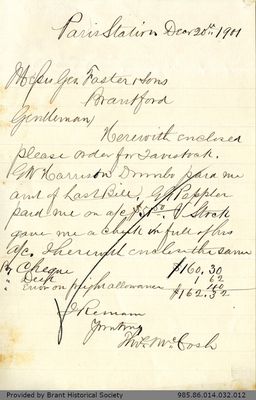 Paris Station Dec 20th 1901
Messrs Geo. Foster & Sons
Brantford
Gentlemen
Herewith enclosed
please order for Tavistock.
GW Harrison Drumbo paid me
amt of Last Bill. G Peppler
paid me on a/c J Stock
gave me a check in full of his
a/c. I herewith enclose the same
By Cheque $160.30
" Deed 1 62
" Error on freight allowance 40
$162.32
I Remain
Yours truly
McCosh
Provided by Brant Historical Society 985.86.014.032.012